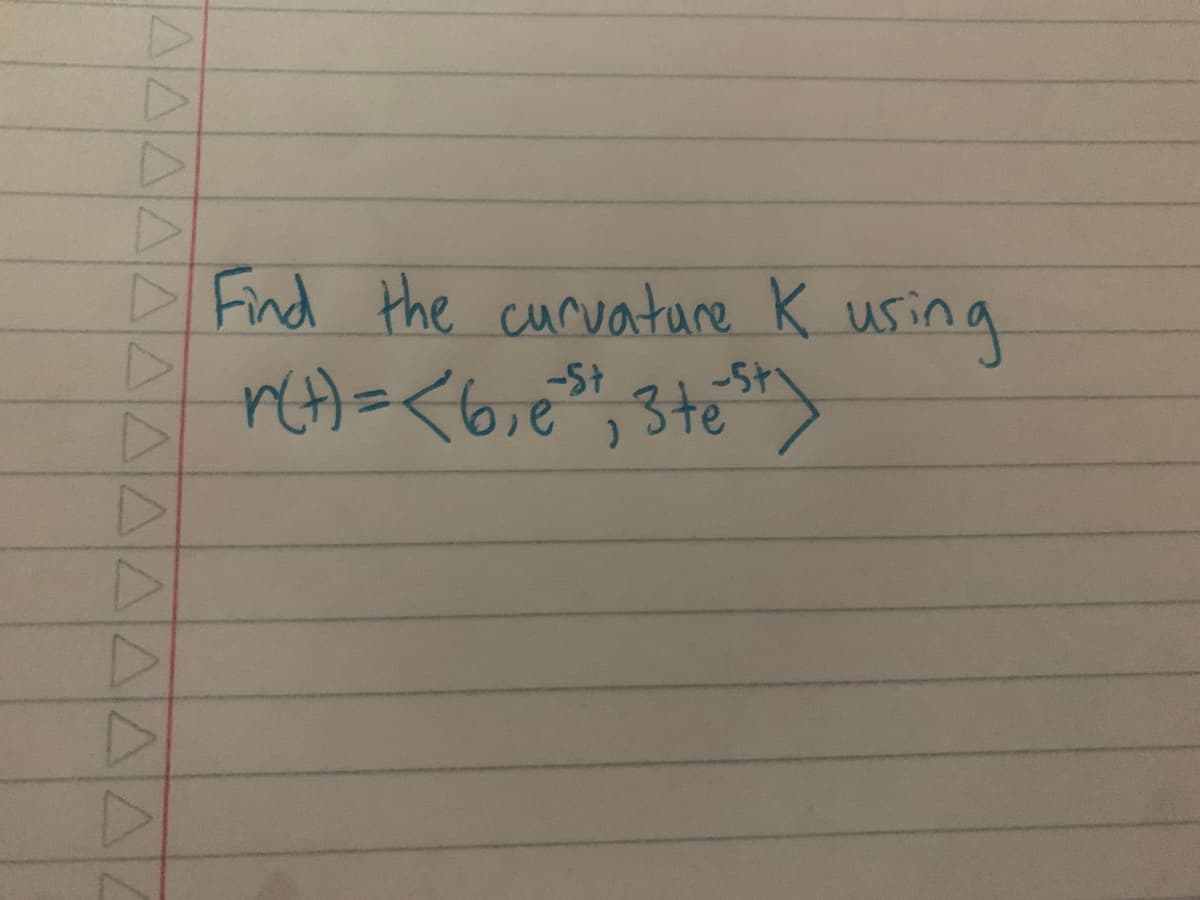 Find the curvature K using
r(t)=<6,e^-5t, 3te^-5t>